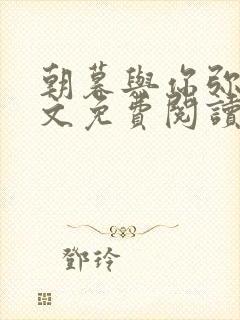 朝暮與你弥
文免費閱讀
鄧玲